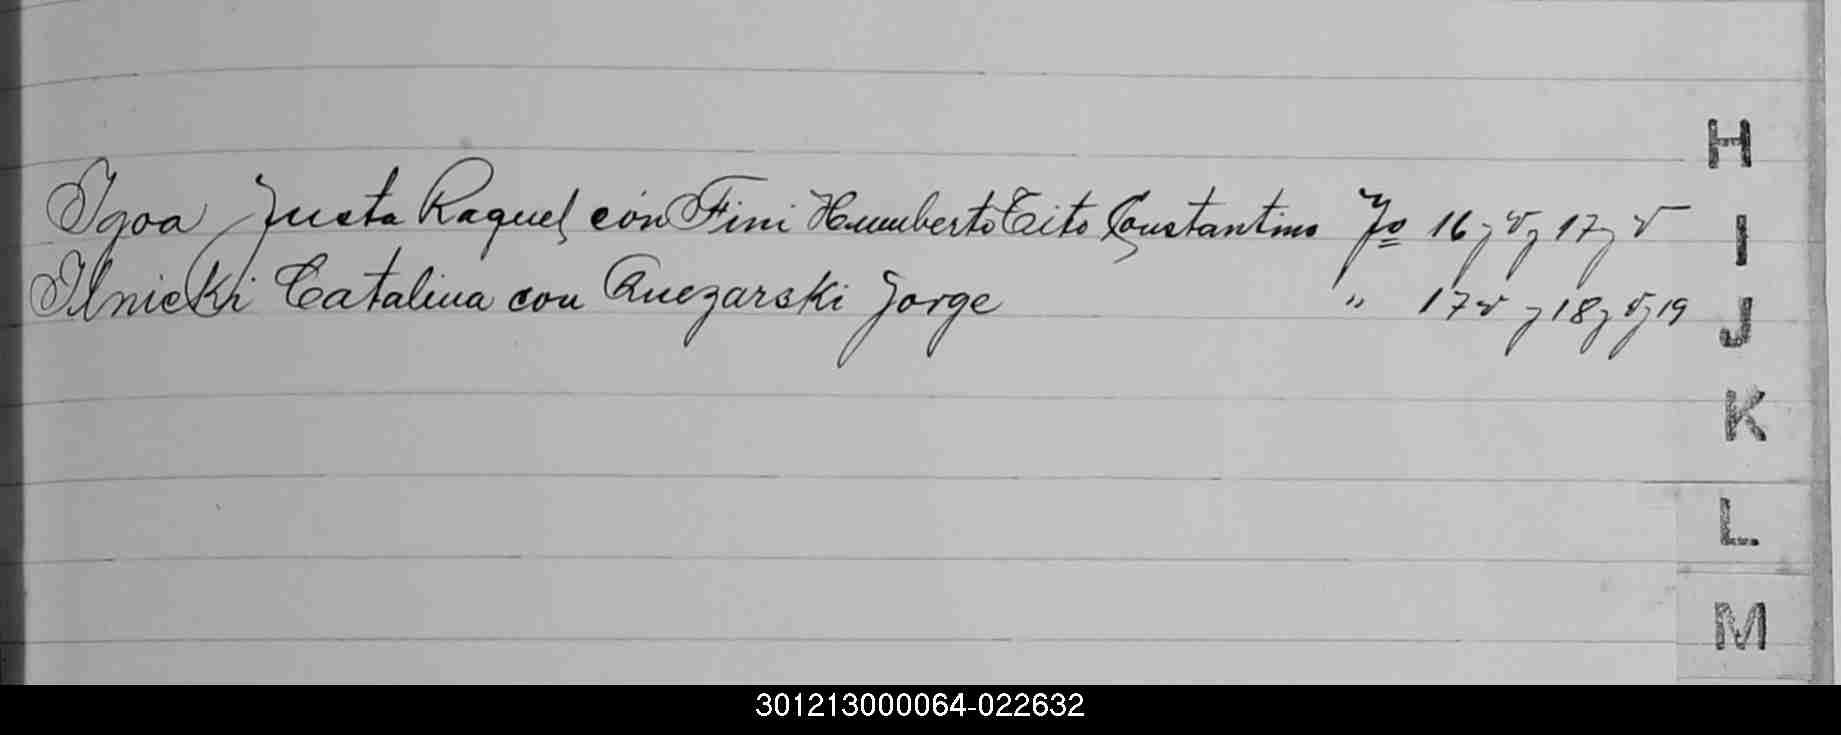 Igoa Justa Raquel con Fini Humberto Tito Constantino Fo 16 y v y 17 y v
Ilnicki Catalina con Quezarski Jorge " 17 v y 18 y v y 19
H
I
J
K
L
M
301213000064-022632